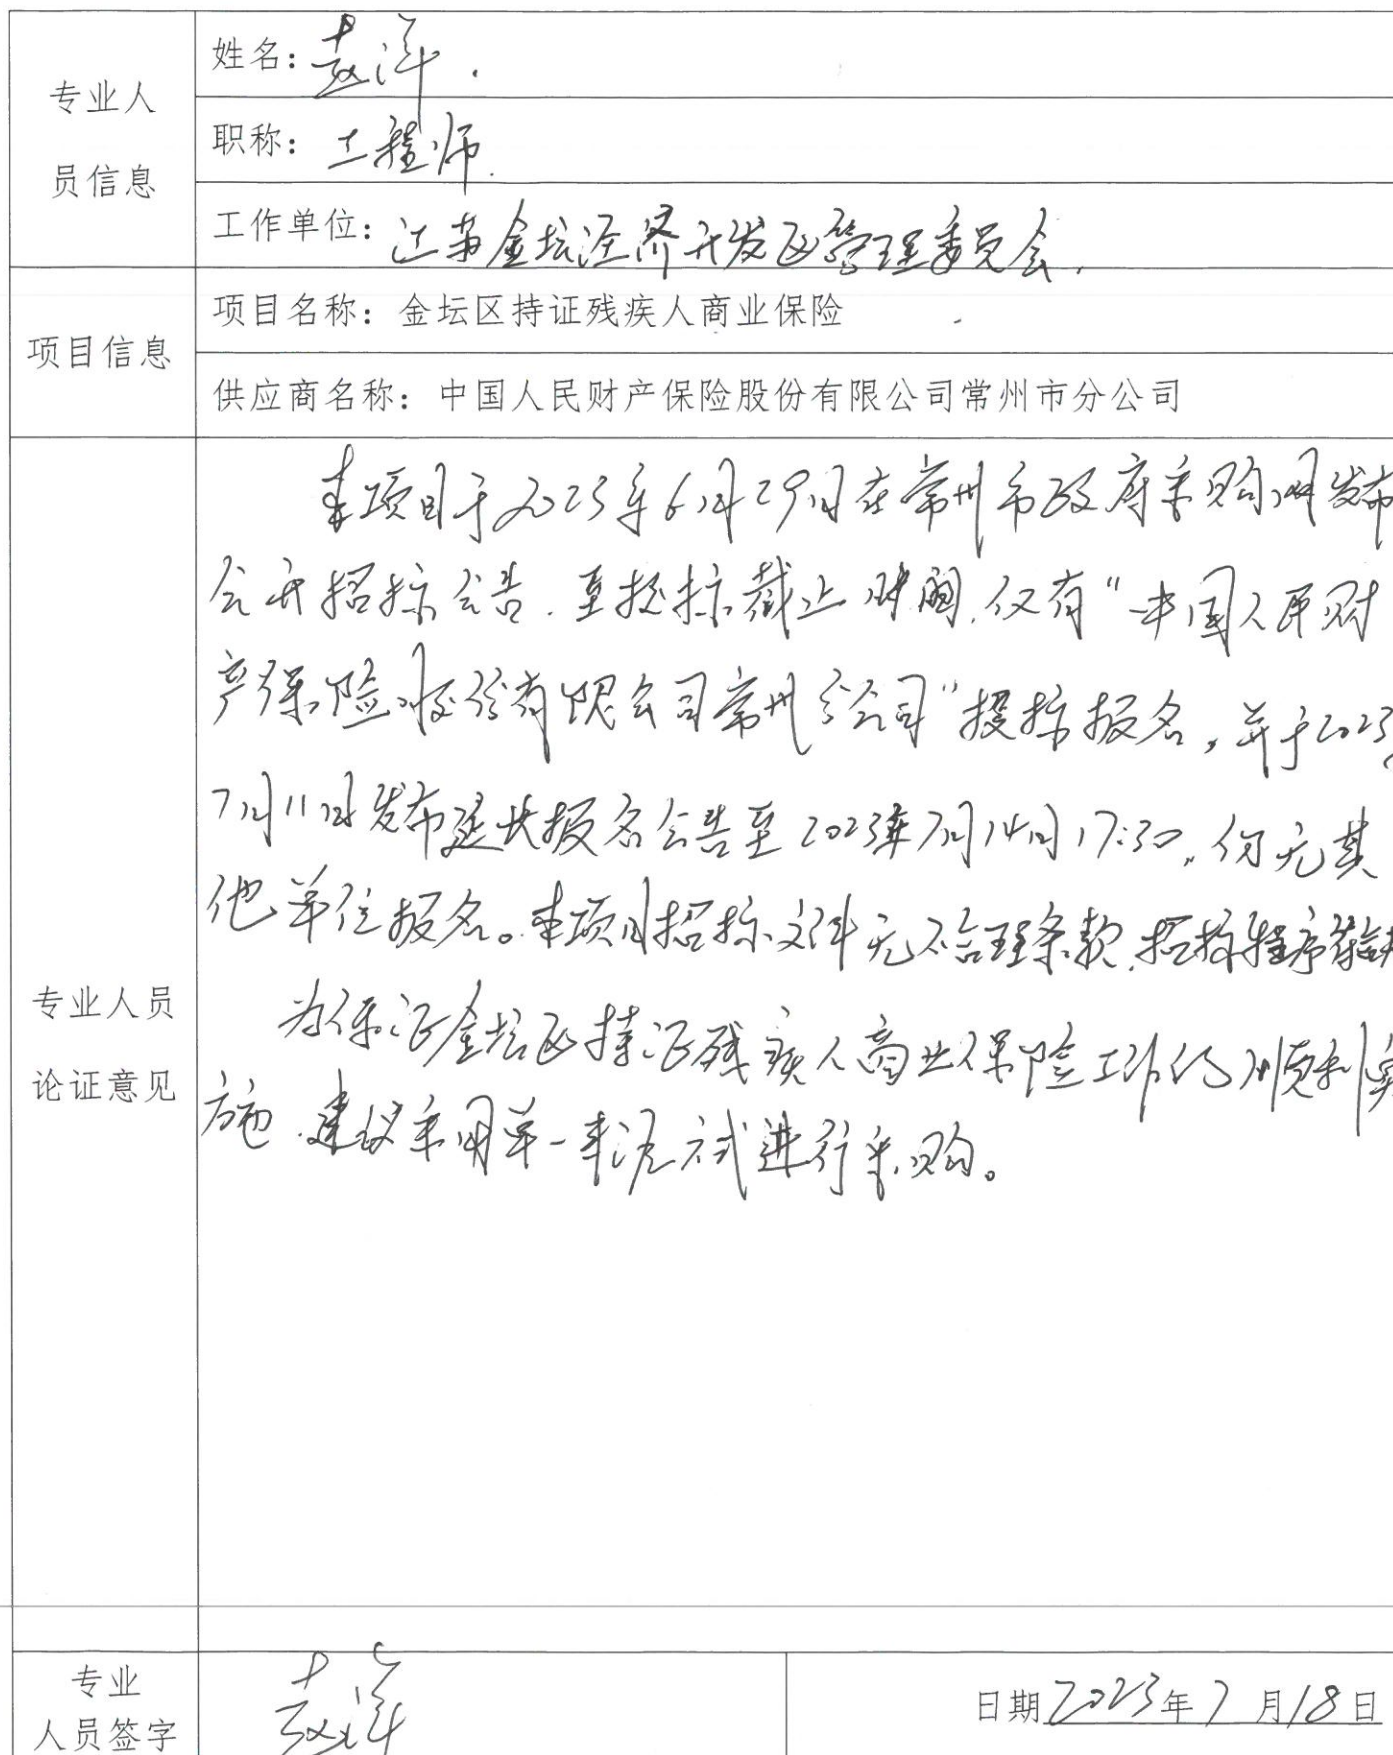 专业人
员信息
姓名：
职称：工程师
工作单位：江苏金坛经济开发区管理委员会.
项目信息
项目名称：金坛区持证残疾人商业保险
供应商名称：中国人民财产保险股份有限公司常州市分公司
专业人员
论证意见
本项目于2023年6月29日在常州市政府采购网发布
公开招标公告.至投标截止时间,仅有"中国人民财
产保险股份有限公司常州分公司"投标报名,并于2023
7月11日发布延长报名公告至2023年7月14日17:30,仍无其
他单位报名。本项目招标文件无不合理条款,招标程序
为保证金坛区持证残疾人商业保险工作的顺利实
施.建议采用单一来源方式进行采购。
专业
人员签字
日期2023年7月18日